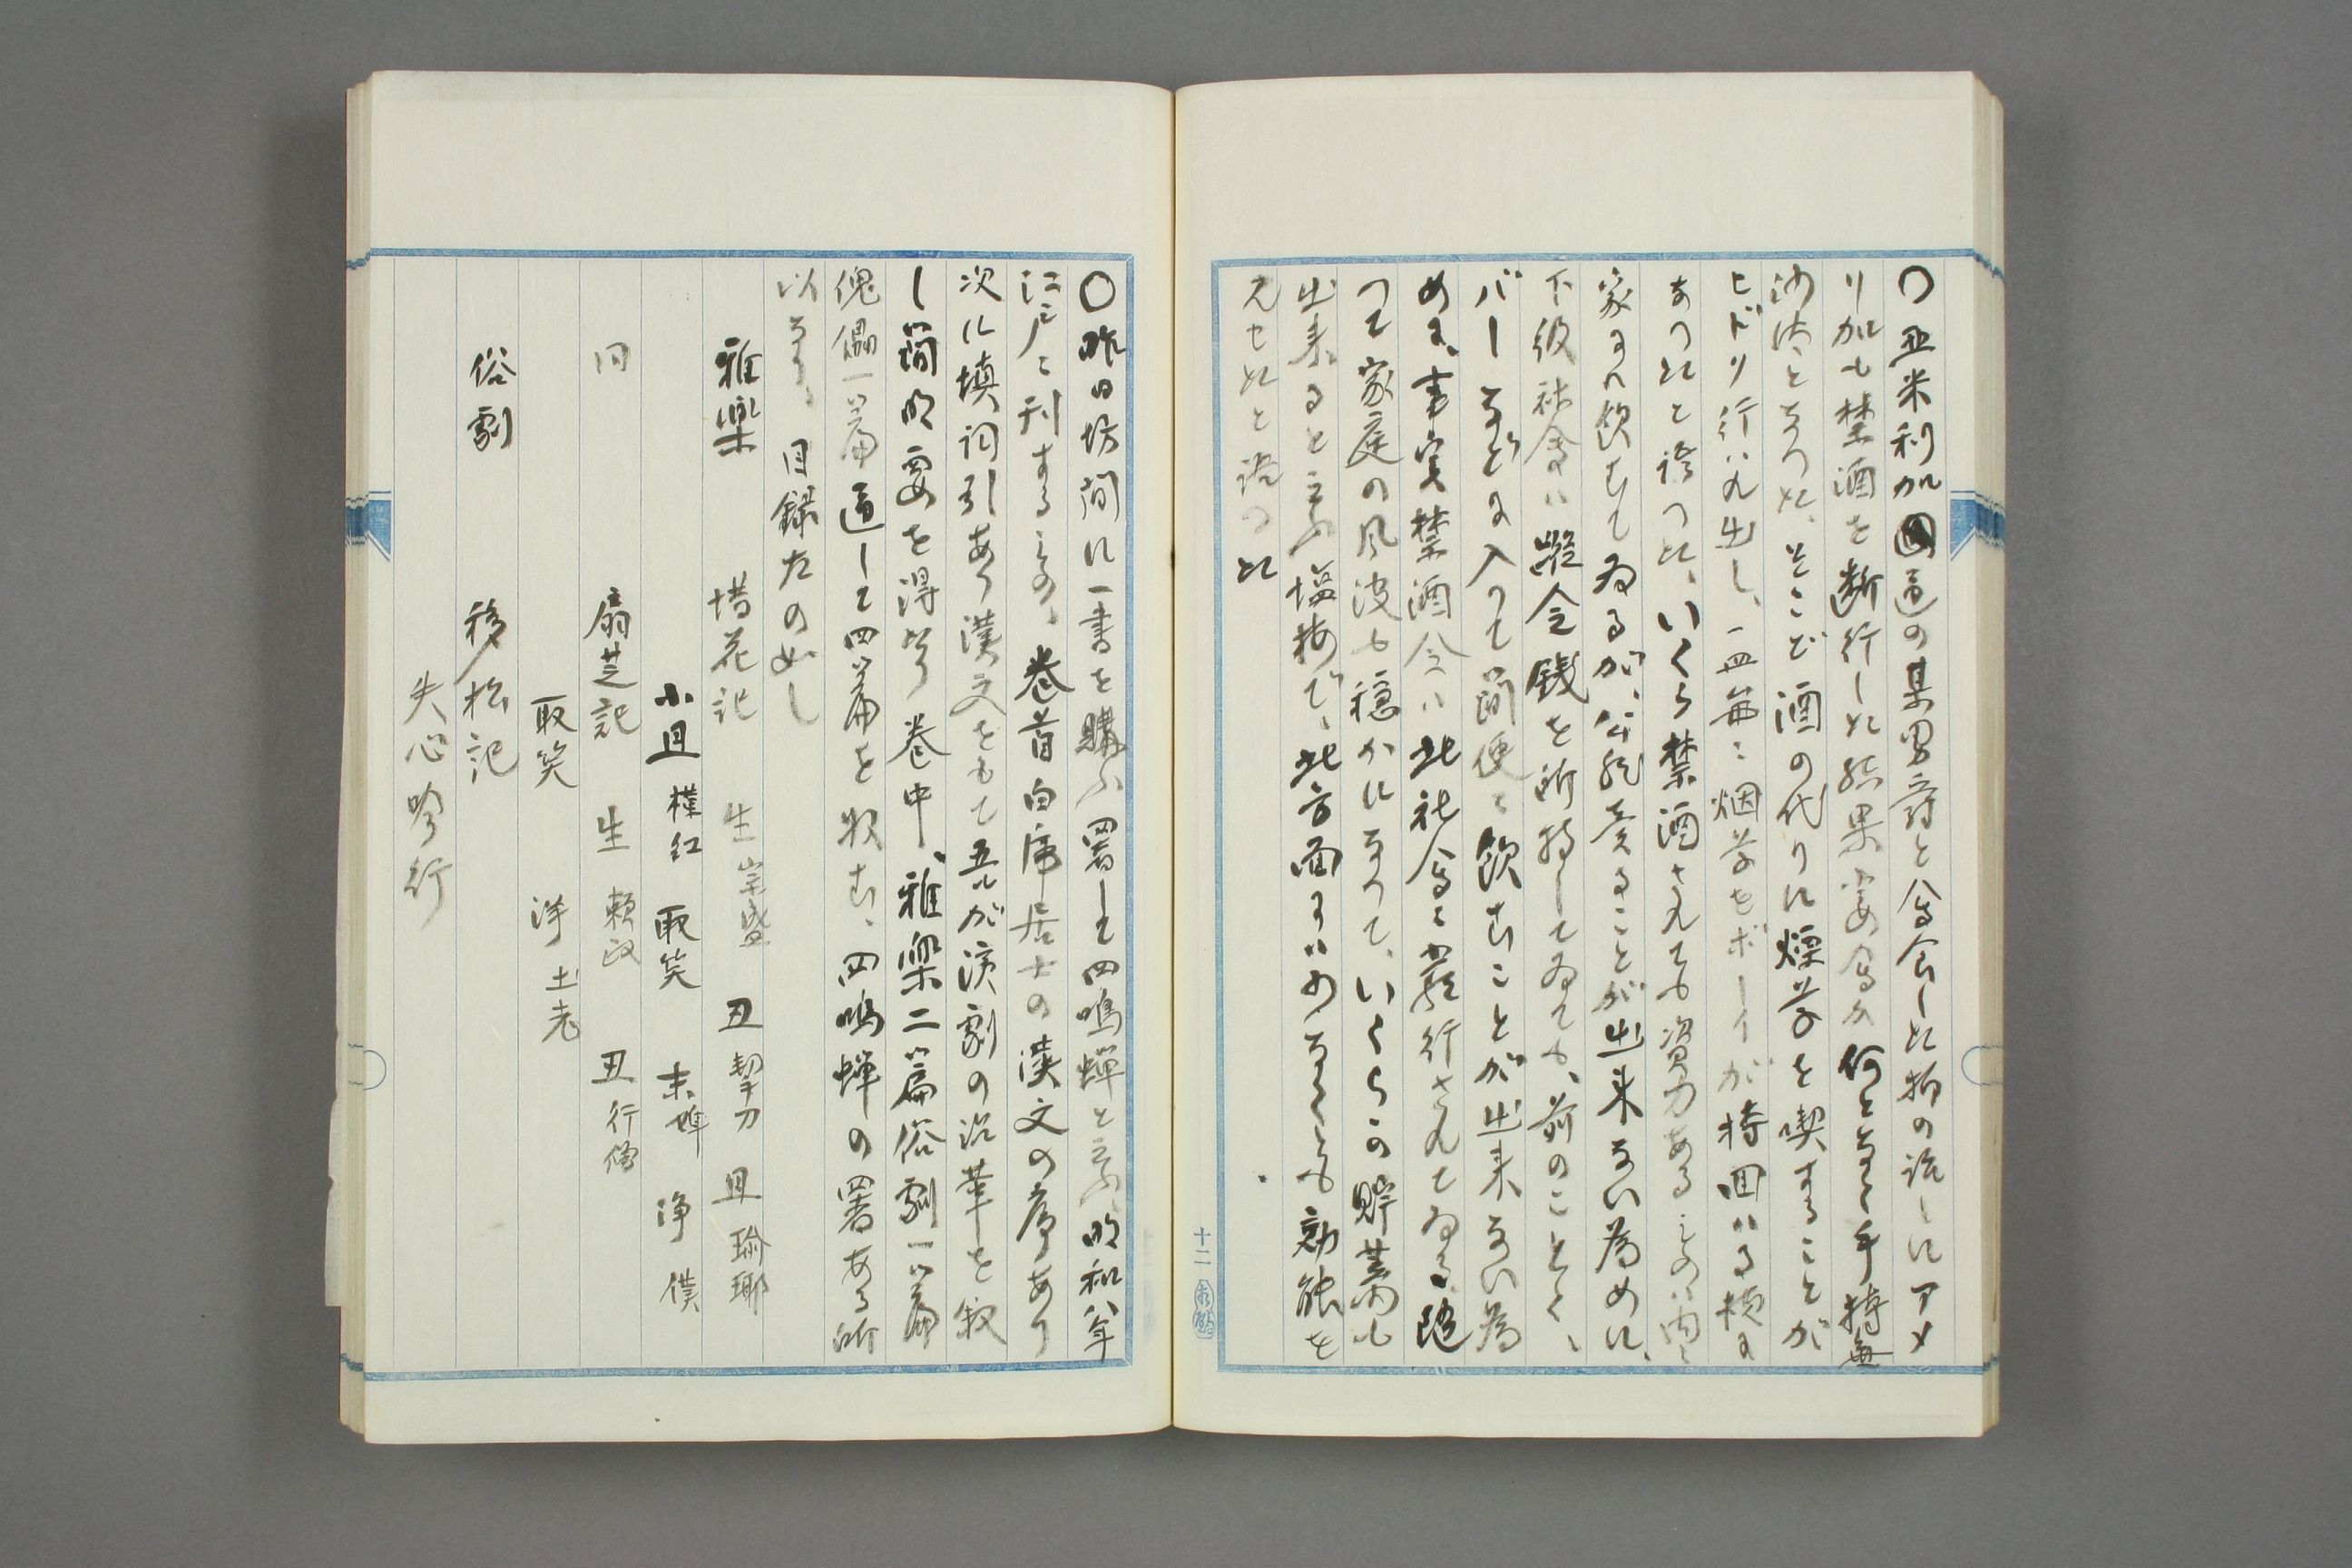 〇亜米利加通の某男爵と会食した折の話しにアメ
リカも禁酒を断行した結果宴会か何となく手持無
沙汰となつた、そこで酒の代りに煙草を喫することが
ヒドリ行ハれ出し、一皿毎に烟草をボーイが持回ハる様ま
あつたと語つた、いくら禁酒されても資力あるものハ内々
家まて飲むてゐるが、公然売ることが出来ない為めに、
下級社会ハ縦令銭を所持してゐても、前のことく、
バーなどに入つて簡便に飲むことが出来ない為
めに、事実禁酒令ハ此社会に励行されてゐる、随
つて家庭の風波も穏かになつて、いくらの貯蓄も
出来ると云ふ塩梅で、此方面にハめなくも効能を
見せたと語つた
十二
〇昨日坊間に一書を購ふ署して四鳴蝉と云ふ、明和八年
江戸に刊するもの、巻首白席居士の漢文の序あり
次に填詞引あり漢文をもて吾が演劇の沿革を叙
し簡明要を得たり 巻中、雅楽二篇俗劇一篇
傀儡一篇通して四篇を収む、四鳴蝉の署ある所
以なり、目録左の如し
雅楽 惜花記 生 宗盛 丑 挈刀 旦 瑜瑯
小旦 樸紅 取笑 末 浄 僕
同 扇芝記 生 頼政 丑 行僧
取笑 浄 土老
俗劇 移松記
失心哮行